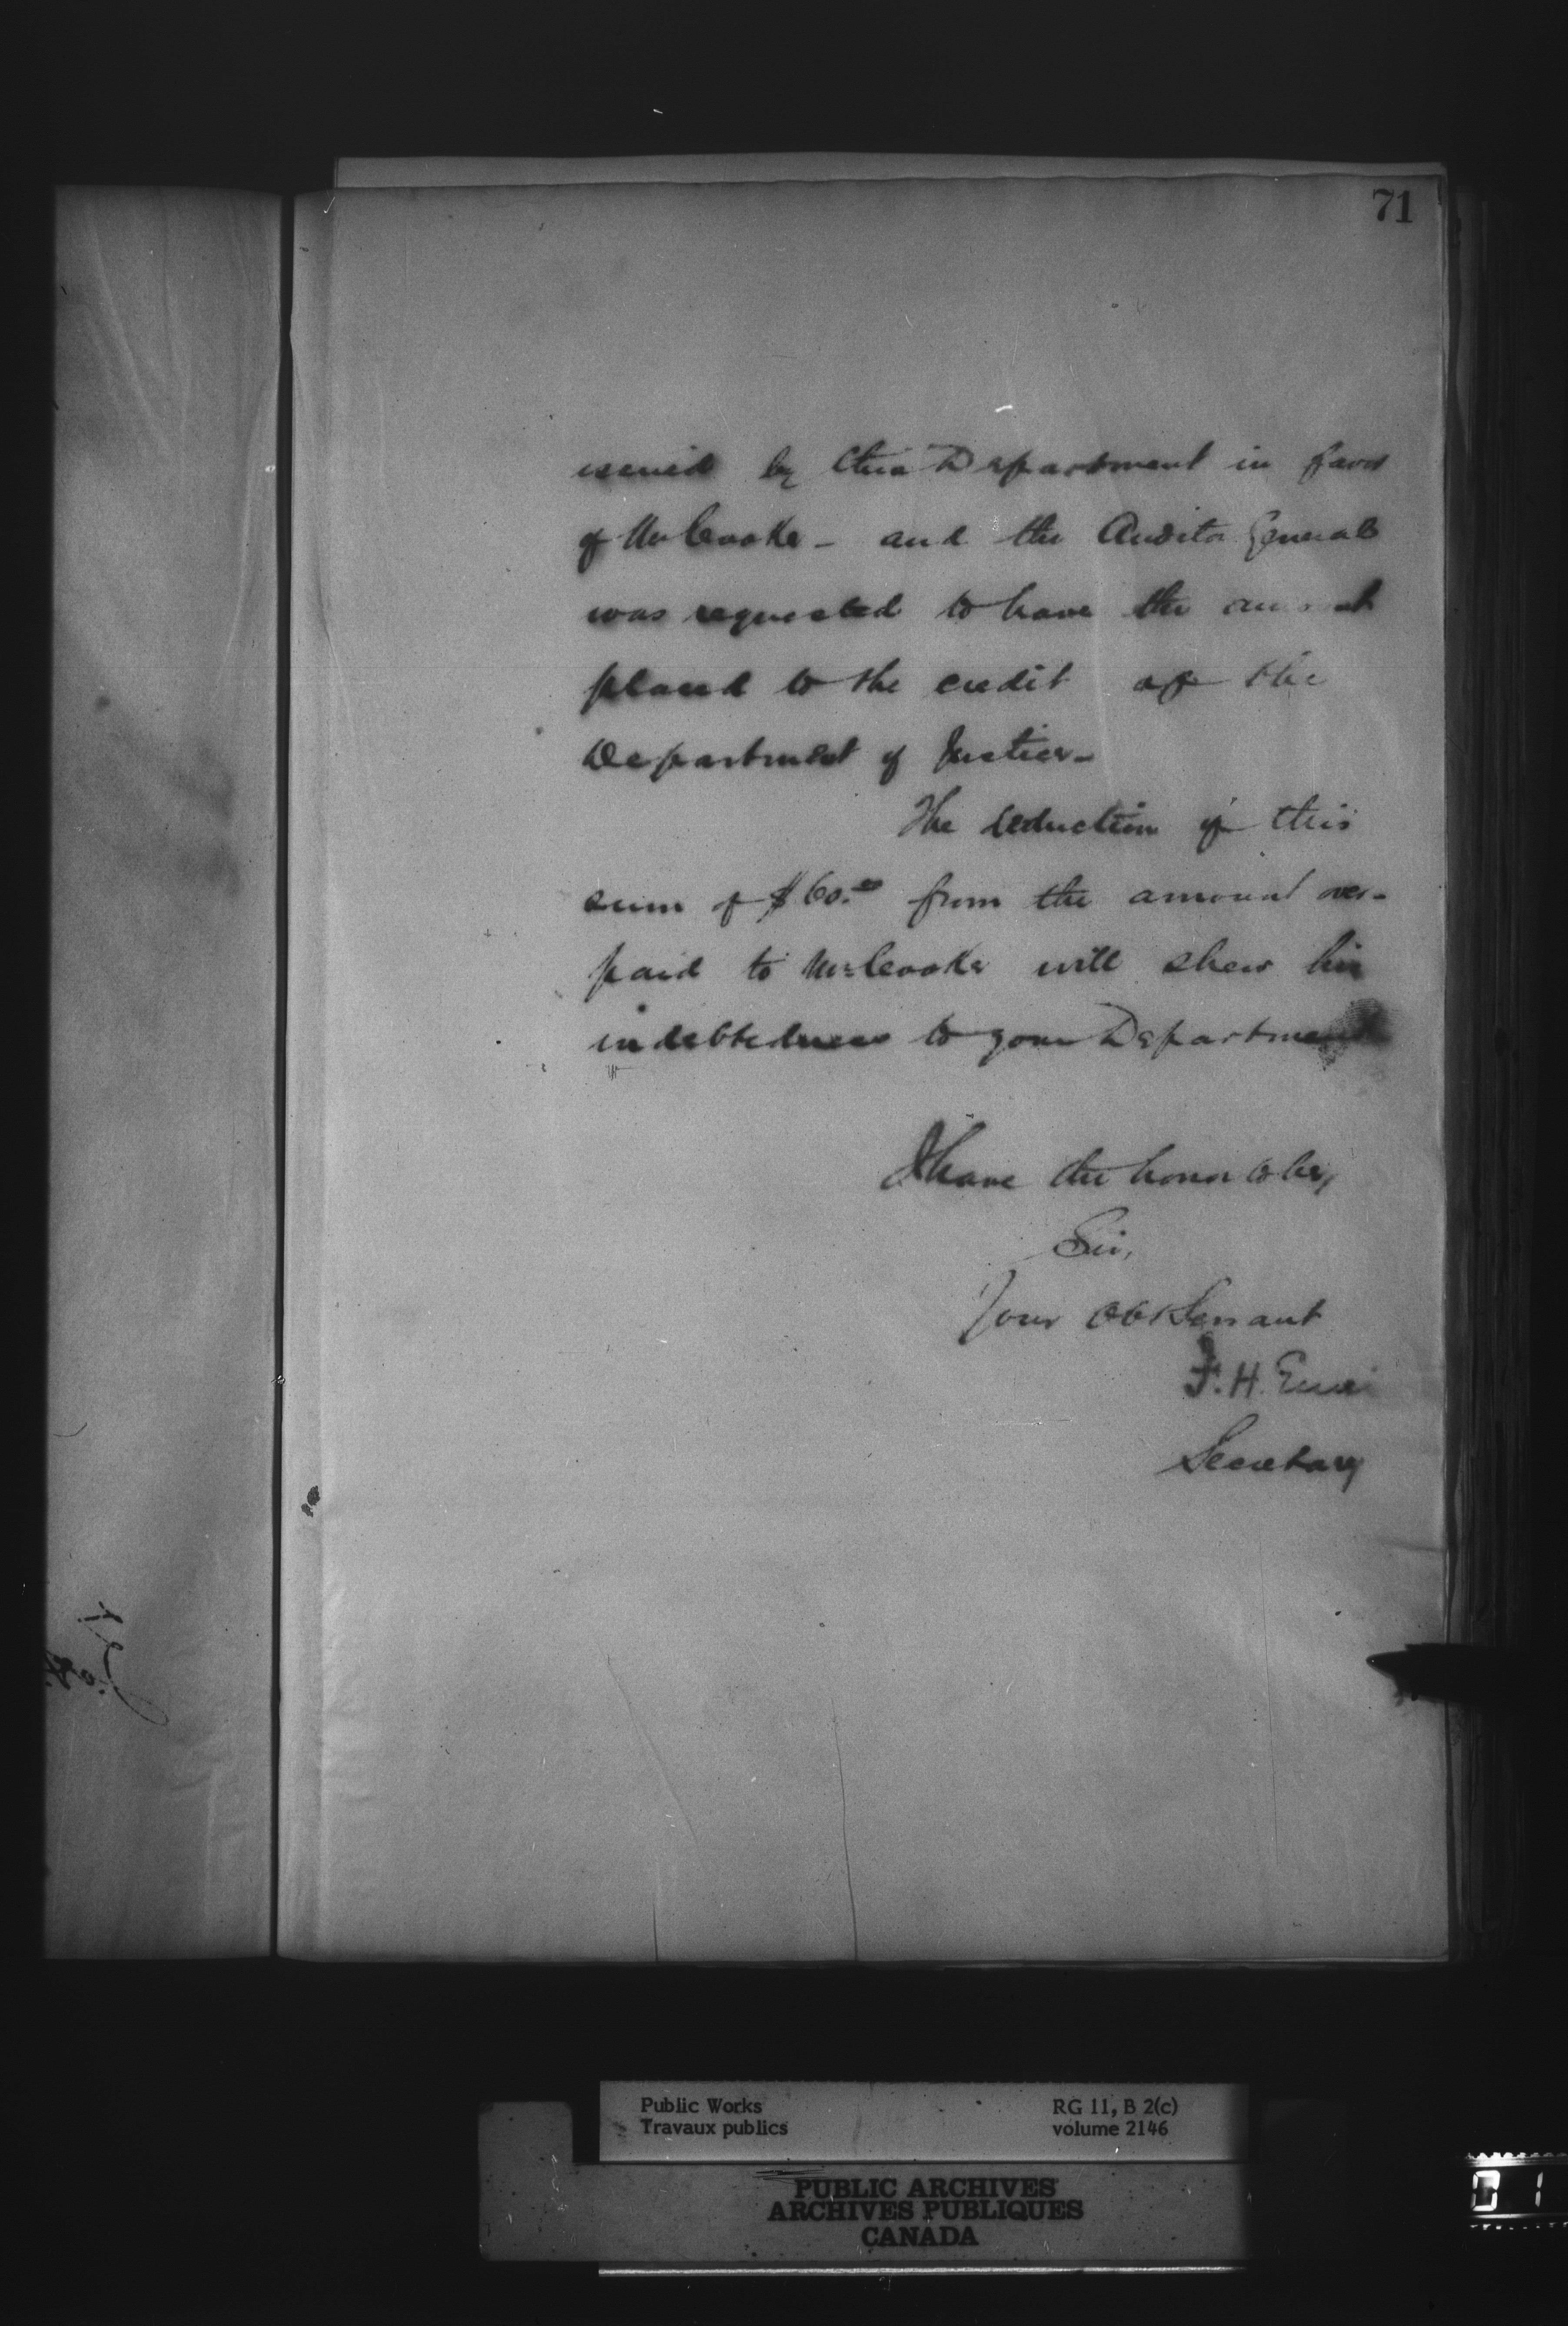 71
issued by this Department in favor
of Mr Cooke - and the Auditor General
was requested to have the amount
placed to the credit of the
Department of Justice -
The deduction of this
sum of $60.00 from the amount over-
paid to Mr Cooke will shew his
indebtedness to your Department
I have the honor to be,
Sir,
Your Obt Servant
F. H. Ennis
Secretary
Public Works
Travaux publics
RG 11, B 2(c)
volume 2146
PUBLIC ARCHIVES
ARCHIVES PUBLIQUES
CANADA